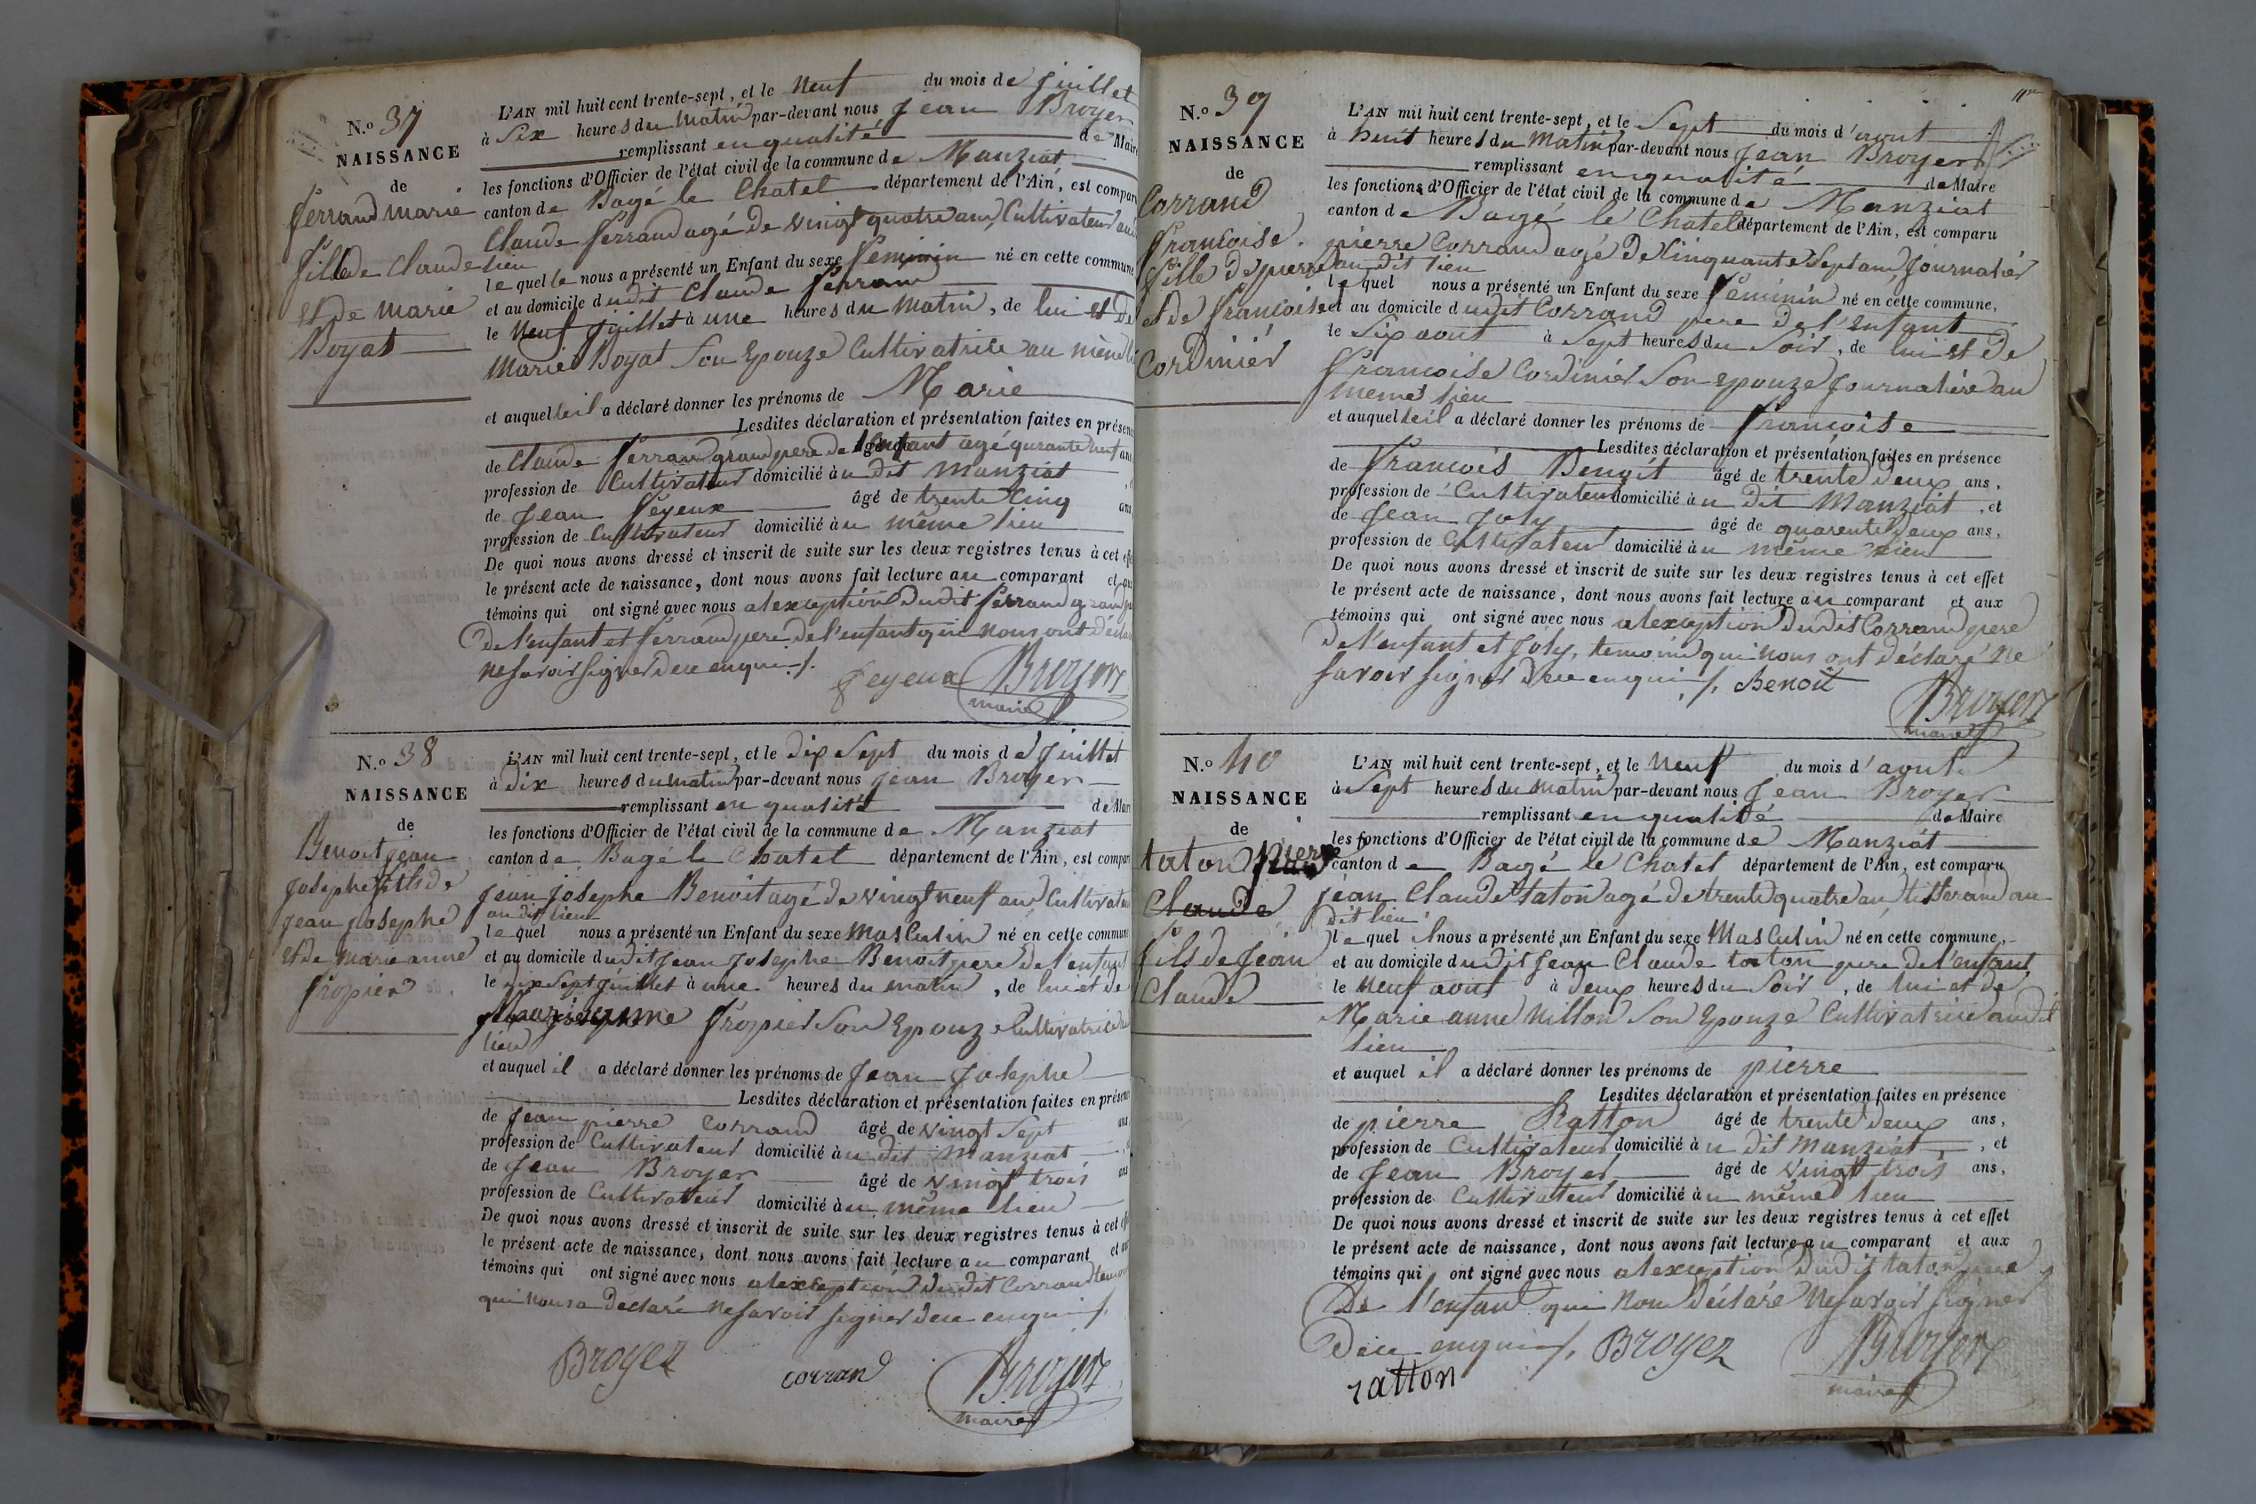 N.o 37
NAISSANCE
de
ferrand marie
fille de Claude
et de marie
Boyat
L'AN mil huit cent trente-sept, et le Neuf du mois de Juillet
à Six heures du Matin par-devant nous Jean Broyer
remplissant en qualité de Maire
les fonctions d'Officier de l'état civil de la commune de Manziat
canton de Bagé le Chatel département de l'Ain, est comparu
Claude ferrand agé de vingt quatre ans Cultivateur au
lieu
lequel le nous a présenté un Enfant du sexe feminin né en cette commune
et au domicile dudit Claude ferrand
le Neuf Juillet à une heures du matin, de lui et de
Marie Boyat Son Epouze Cultivatrice au même
et auquel leil a déclaré donner les prénoms de Marie
Lesdites déclaration et présentation faites en présence
de Claude ferrand grand pere de l'enfant agé qurante neuf ans
profession de Cultivateur domicilié au dit Manziat
de Jean feyeux âgé de trente Cinq ans
profession de Cultivateur domicilié au même lieu
De quoi nous avons dressé et inscrit de suite sur les deux registres tenus à cet effet
le présent acte de naissance, dont nous avons fait lecture au comparant et aux
témoins qui ont signé avec nous alexception dudit ferrand grand
de l'enfant et ferrand pere de l'enfant qui nous ont
ne savoir signer de ce enquis /.
feyeux Broyer
maire
N.o 38
NAISSANCE
de
Benoit jean
Josephe fils de
jean josephe
et de marie anne
fropier
L'AN mil huit cent trente-sept, et le dix Sept du mois de Juillet
à dix heures du matin par-devant nous jean Broyer
remplissant en qualité de Maire
les fonctions d'Officier de l'état civil de la commune de Manziat
canton de Bagé le Chatel département de l'Ain, est comparu
jean josephe Benoit agé de vingt neuf ans Cultivateur
au dit lieu
lequel nous a présenté un Enfant du sexe Masculin né en cette commune
et au domicile dudit Jean Josephe Benoit pere de l'enfant
le dix Sept Juillet à une heures du matin, de lui et de
marie anne fropier Son Epouze Cultivatrice
lieu
et auquel il a déclaré donner les prénoms de Jean Josephe
Lesdites déclaration et présentation faites en présence
de Jean pierre Corrand âgé de vingt Sept ans
profession de Cultivateur domicilié au dit Manziat
de Jean Broyer âgé de vingt trois ans
profession de Cultivateur domicilié au même lieu
De quoi nous avons dressé et inscrit de suite sur les deux registres tenus à cet effet
le présent acte de naissance, dont nous avons fait lecture au comparant et aux
témoins qui ont signé avec nous alexception dudit Corrand
qui nous a déclaré ne savoir signer de ce enquis /.
Broyer corrand Broyer
maire
N.o 39
NAISSANCE
de
Corrand
francoise
fille de pierre
et de francoise
Cordinier
L'AN mil huit cent trente-sept, et le Sept du mois d'aout
à heuit heures du Matin par-devant nous Jean Broyer
remplissant en qualité de Maire
les fonctions d'Officier de l'état civil de la commune de Manziat
canton de Bagé le Chatel département de l'Ain, est comparu
pierre Corrand agé de Cinquante Sept ans Journalier
au dit lieu
lequel nous a présenté un Enfant du sexe feminin né en cette commune,
et au domicile dudit Corrand pere de l'enfant
le Six aout à Sept heures du Soir, de lui et de
francoise Cordinier Son epouze Journaliere au
meme lieu
et auquel leil a déclaré donner les prénoms de francoise
Lesdites déclaration et présentation faites en présence
de francois Benoit âgé de trente deux ans,
profession de Cultivateur domicilié au dit Manziat, et
de Jean Joly âgé de quarente deux ans,
profession de Cultivateur domicilié au même lieu
De quoi nous avons dressé et inscrit de suite sur les deux registres tenus à cet effet
le présent acte de naissance, dont nous avons fait lecture au comparant et aux
témoins qui ont signé avec nous alexception dudit Corrand pere
de l'enfant et Joly, temoin qui nous ont déclaré ne
savoir signer de ce enquis /. Benoit
Broyer
maire
N.o 40
NAISSANCE
de
taton pierre
Claude
fils de Jean
Claude
L'AN mil huit cent trente-sept, et le Neuf du mois d'aout
à Sept heures du Matin par-devant nous Jean Broyer
remplissant en qualité de Maire
les fonctions d'Officier de l'état civil de la commune de Manziat
canton de Bagé le Chatel département de l'Ain, est comparu
jean Claude taton agé de trente quatre ans tisserand au
dit lieu
lequel il nous a présenté un Enfant du sexe Masculin né en cette commune,
et au domicile dudit Jean Claude taton pere de l'enfant
le Neuf aout à deux heures du Soir, de lui et de
Marie anne Nillon Son Epouze Cultivatrice audit
lieu
et auquel il a déclaré donner les prénoms de pierre
Lesdites déclaration et présentation faites en présence
de pierre Ratton âgé de trente deux ans,
profession de Cultivateur domicilié au dit Manziat, et
de Jean Broyer âgé de vingt trois ans,
profession de Cultivateur domicilié au même lieu
De quoi nous avons dressé et inscrit de suite sur les deux registres tenus à cet effet
le présent acte de naissance, dont nous avons fait lecture au comparant et aux
témoins qui ont signé avec nous alexception dudit taton pere
De l'enfant qui nous déclaré ne savoir signer
De ce enquis /. Broyer Broyer
ratton maire